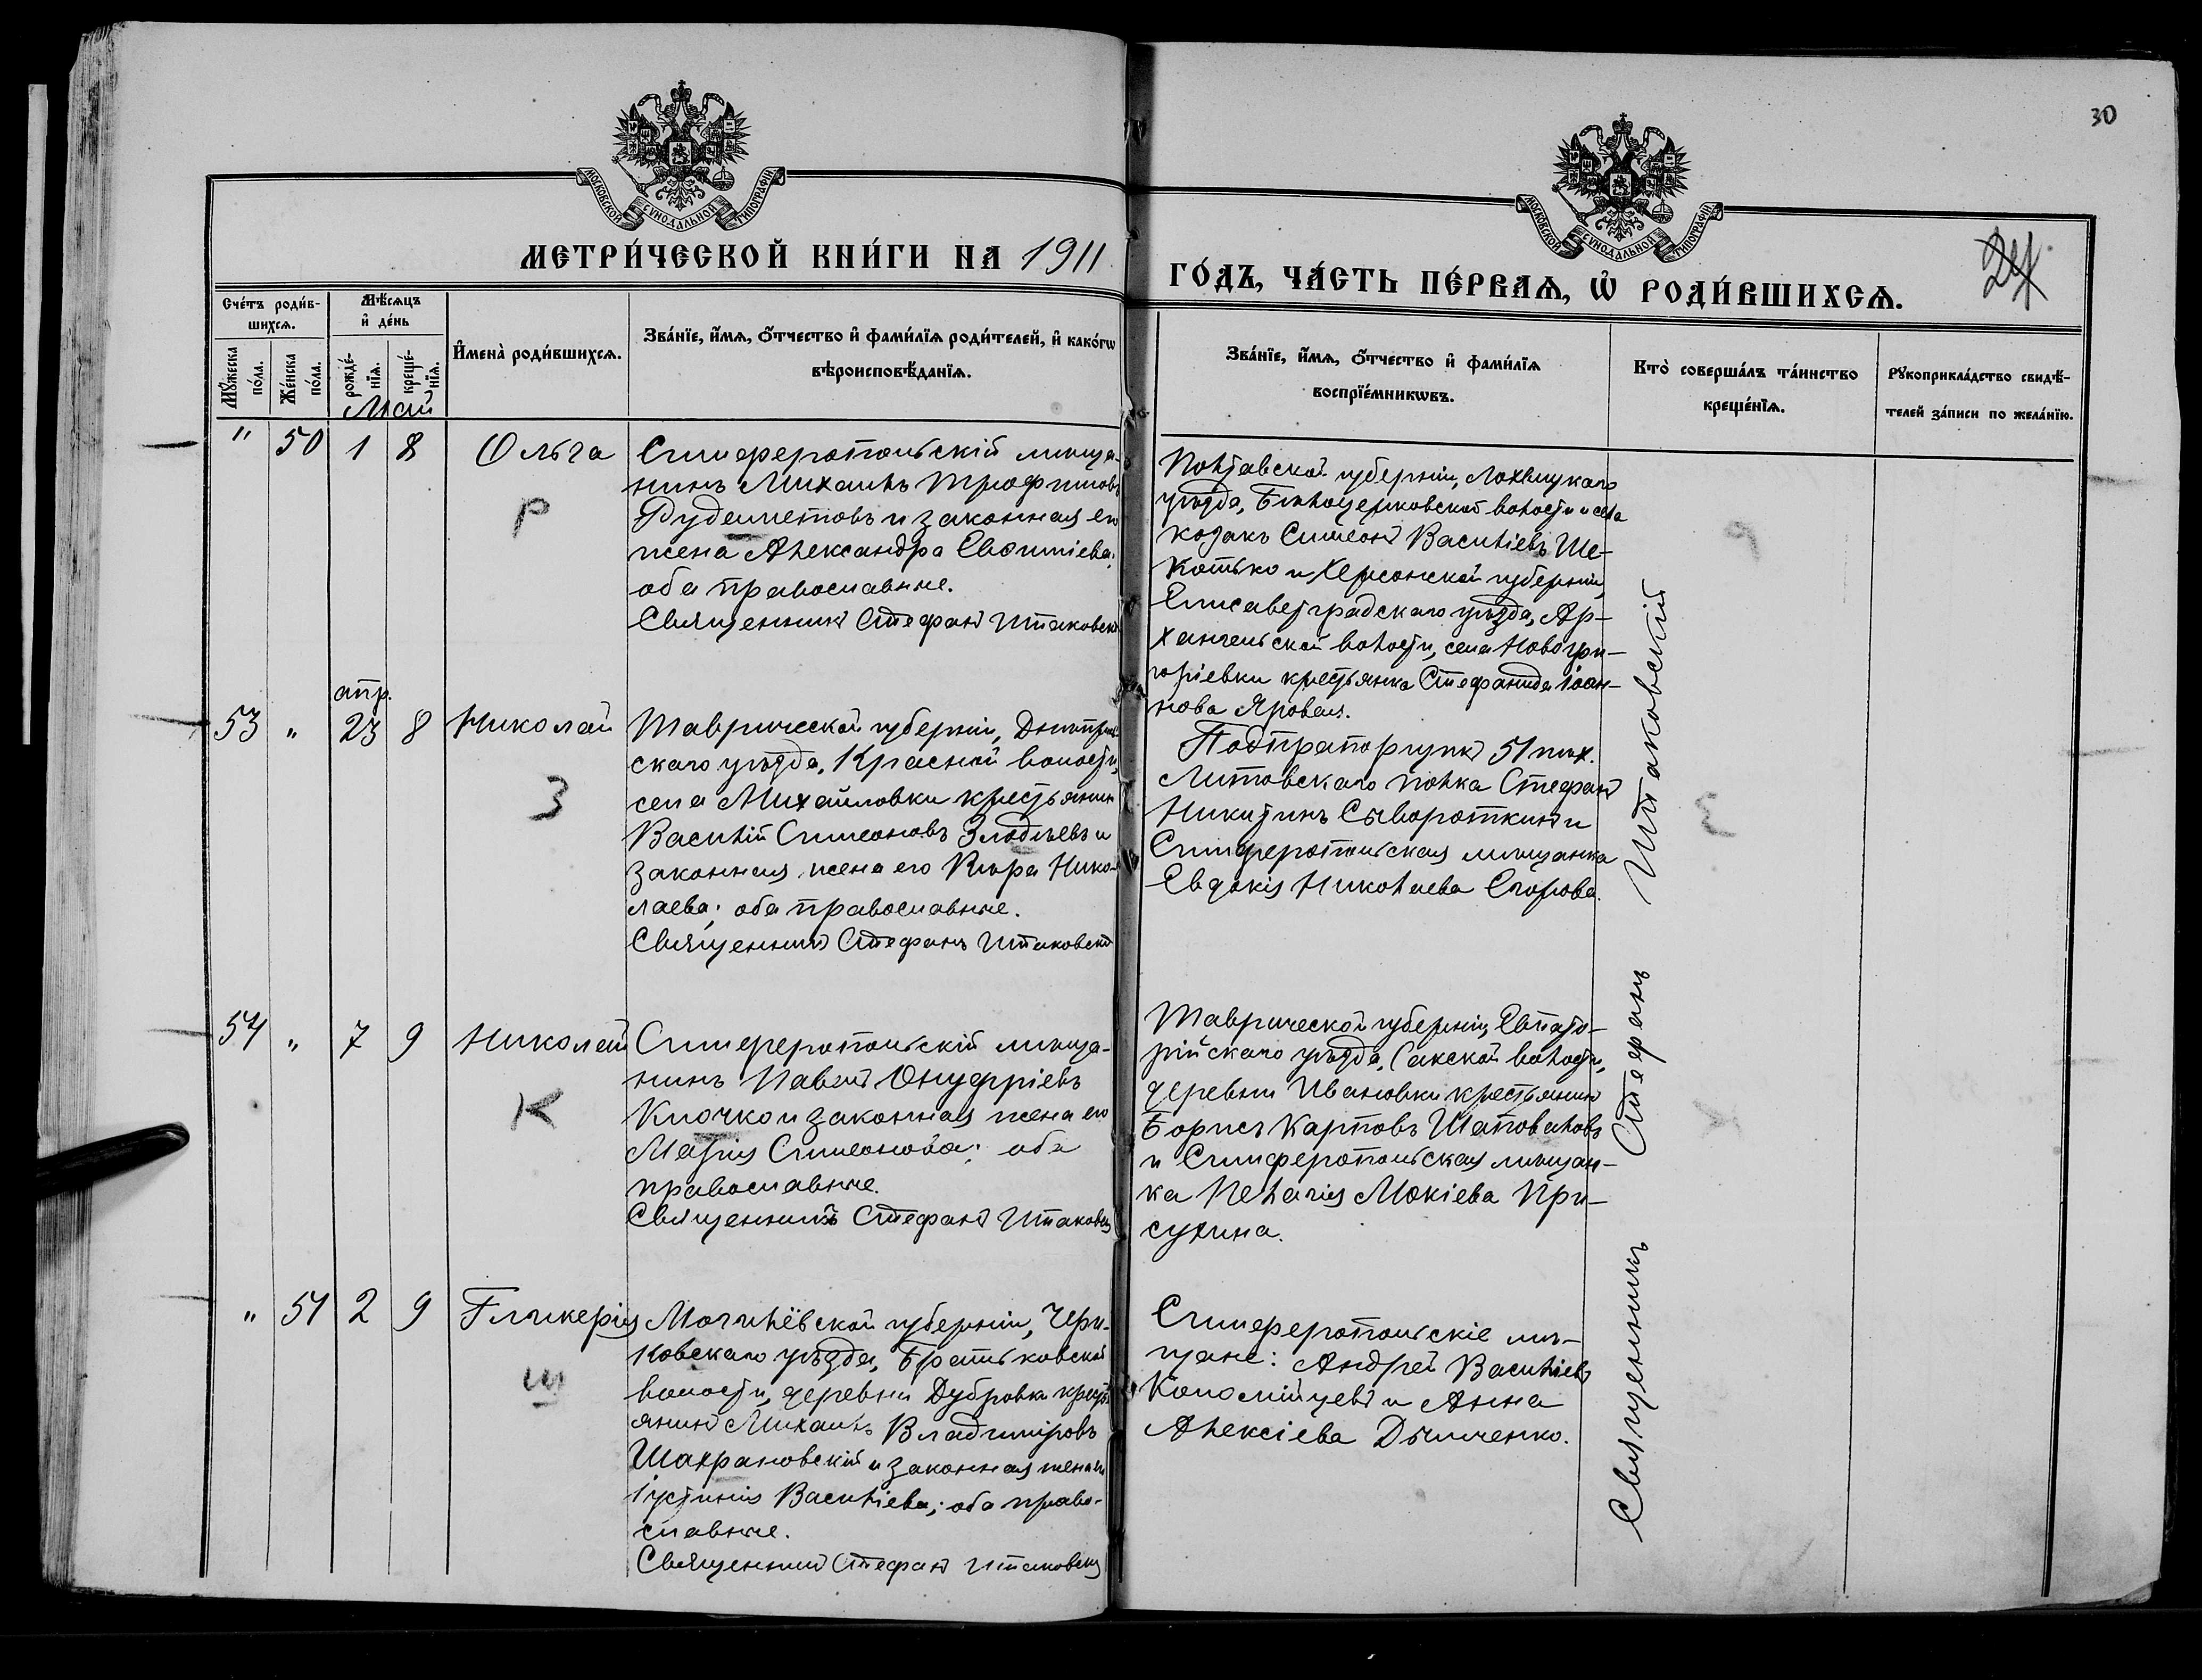 30
МОСКОВСКОЙ СУНОДАЛЬНОЙ ТИПОГРАФІИ
МОСКОВСКОЙ СУНОДАЛЬНОЙ ТИПОГРАФІИ
МЕТРИ́ЧЕСКОЙ КНИ́ГИ НА 1911
ГО́ДЪ, ЧА́СТЬ ПЕ́РВАѦ, Ѡ҆ РОДИ́ВШИХСѦ.
24
Сче́тъ роди́в-
шихсѧ.
Мꙋ́жеска по́ла.
Же́нска по́ла.
Мѣ́сѧцъ
и҆ де́нь
рожде́-
нїѧ.
креще́-
нїѧ.
И҆мена̀ роди́вшихсѧ.
Зва́нїе, и҆́мѧ, ѻ҆́тчество и҆ фами́лїѧ роди́телей, и҆ како́гѡ
вѣроисповѣ́данїѧ.
Зва́нїе, и҆́мѧ, ѻ҆́тчество и҆ фами́лїѧ
воспрїе́мникѡвъ.
Кто̀ соверша́лъ та́инство
креще́нїѧ.
Рꙋкоприкла́дство свидѣ́-
телей за́писи по жела́нїю.
Май
" 50 1 8 Ольга
Р
Симферопольскій мѣща-
нинъ Михаилъ Трофимовъ
Рудеметовъ и законная его
жена Александра Евѳиміева;
оба православные.
Священникъ Стефанъ Штаковскій
Полтавской губерніи, Лохвицкаго
уѣзда, Бѣлоцерковской волости и села
козакъ Симеонъ Васильевъ Ше-
котько и Херсонской губерніи,
Елисаветградскаго уѣзда, Ар-
хангельской волости, села Новогри-
горіевки крестьянка Стефанида Іоан-
нова Яровая.
апр.
53 " 23 8 Николай
З
Таврической губерніи, Днѣпров-
скаго уѣзда, Красной волости,
села Михайловки крестьянинъ
Василій Симеоновъ Злодѣевъ и
законная жена его Вѣра Нико-
лаева; оба православные.
Священникъ Стефанъ Штаковскій
Подпрапорщикъ 51 пѣх.
Литовскаго полка Стефанъ
Никитинъ Сывороткинъ и
Симферопольская мѣщанка
Евдокія Николаева Егорова.
54 " 7 9 Николай
К
Симферопольскій мѣща-
нинъ Павелъ Онуфріевъ
Клочко и законная жена его
Марія Симеонова; оба
православные.
Священникъ Стефанъ Штаковскій
Таврической губерніи, Евпато-
рійскаго уѣзда, Сакской волости,
деревни Ивановки крестьянинъ
Борисъ Карповъ Шаповаловъ
и Симферопольская мѣщан-
ка Пелагія Мокіева При-
сухина.
" 51 2 9 Гликерія
Ш
Могилёвской губерніи, Чери-
ковскаго уѣзда, Братьковской
волости, деревни Дубровки кресть-
янинъ Михаилъ Владиміровъ
Шафрановскій и законная жена его
Іустинія Васильева; оба право-
славные.
Священникъ Стефанъ Штаковскій
Симферопольскіе мѣ-
щане: Андрей Васильевъ
Коломійцевъ и Анна
Алексіева Дымченко.
Священникъ Стефанъ Штаковскій